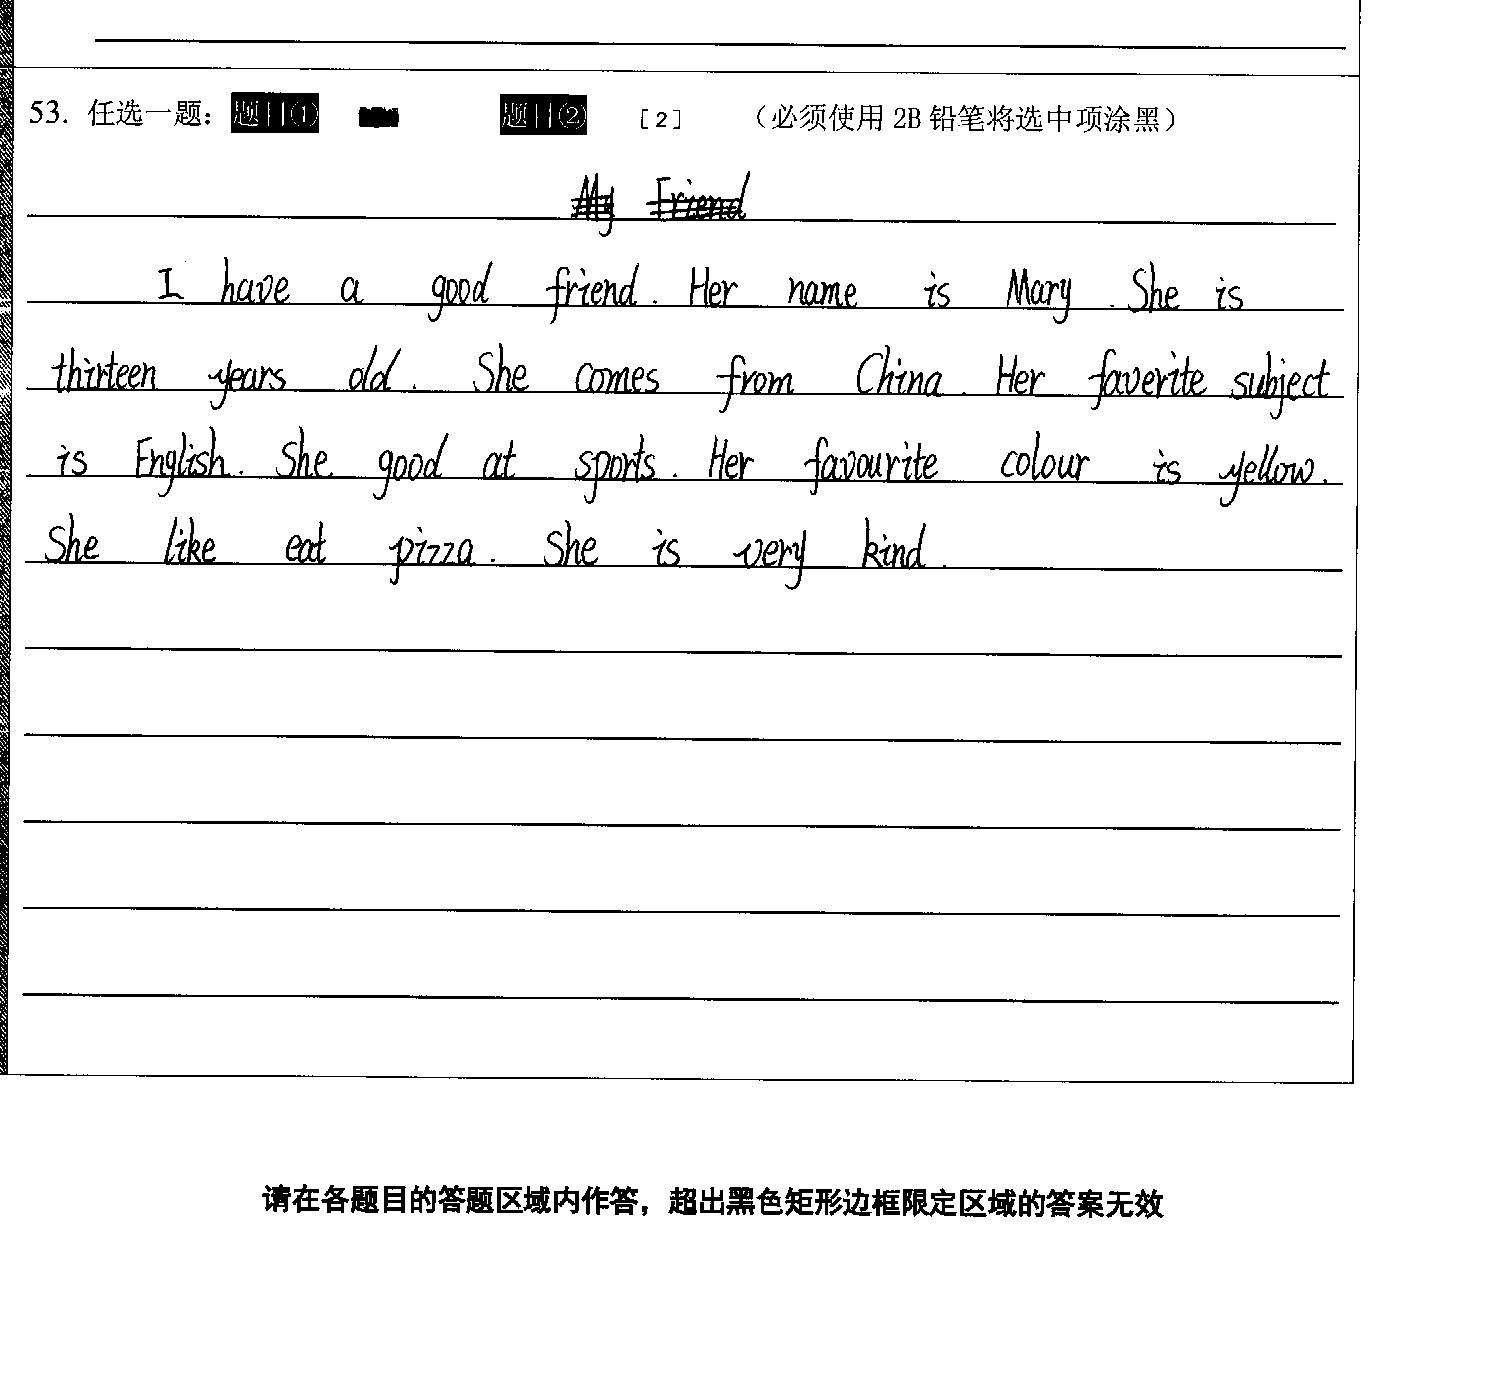 53. 任选一题： 题目① 题目② [2] （必须使用 2B 铅笔将选中项涂黑）
My Friend
I have a good friend. Her name is Mary. She is
thirteen years old. She comes from China. Her faverite subject
is English. She good at sports. Her favourite colour is yellow.
She like eat pizza. She is very kind.
请在各题目的答题区域内作答，超出黑色矩形边框限定区域的答案无效